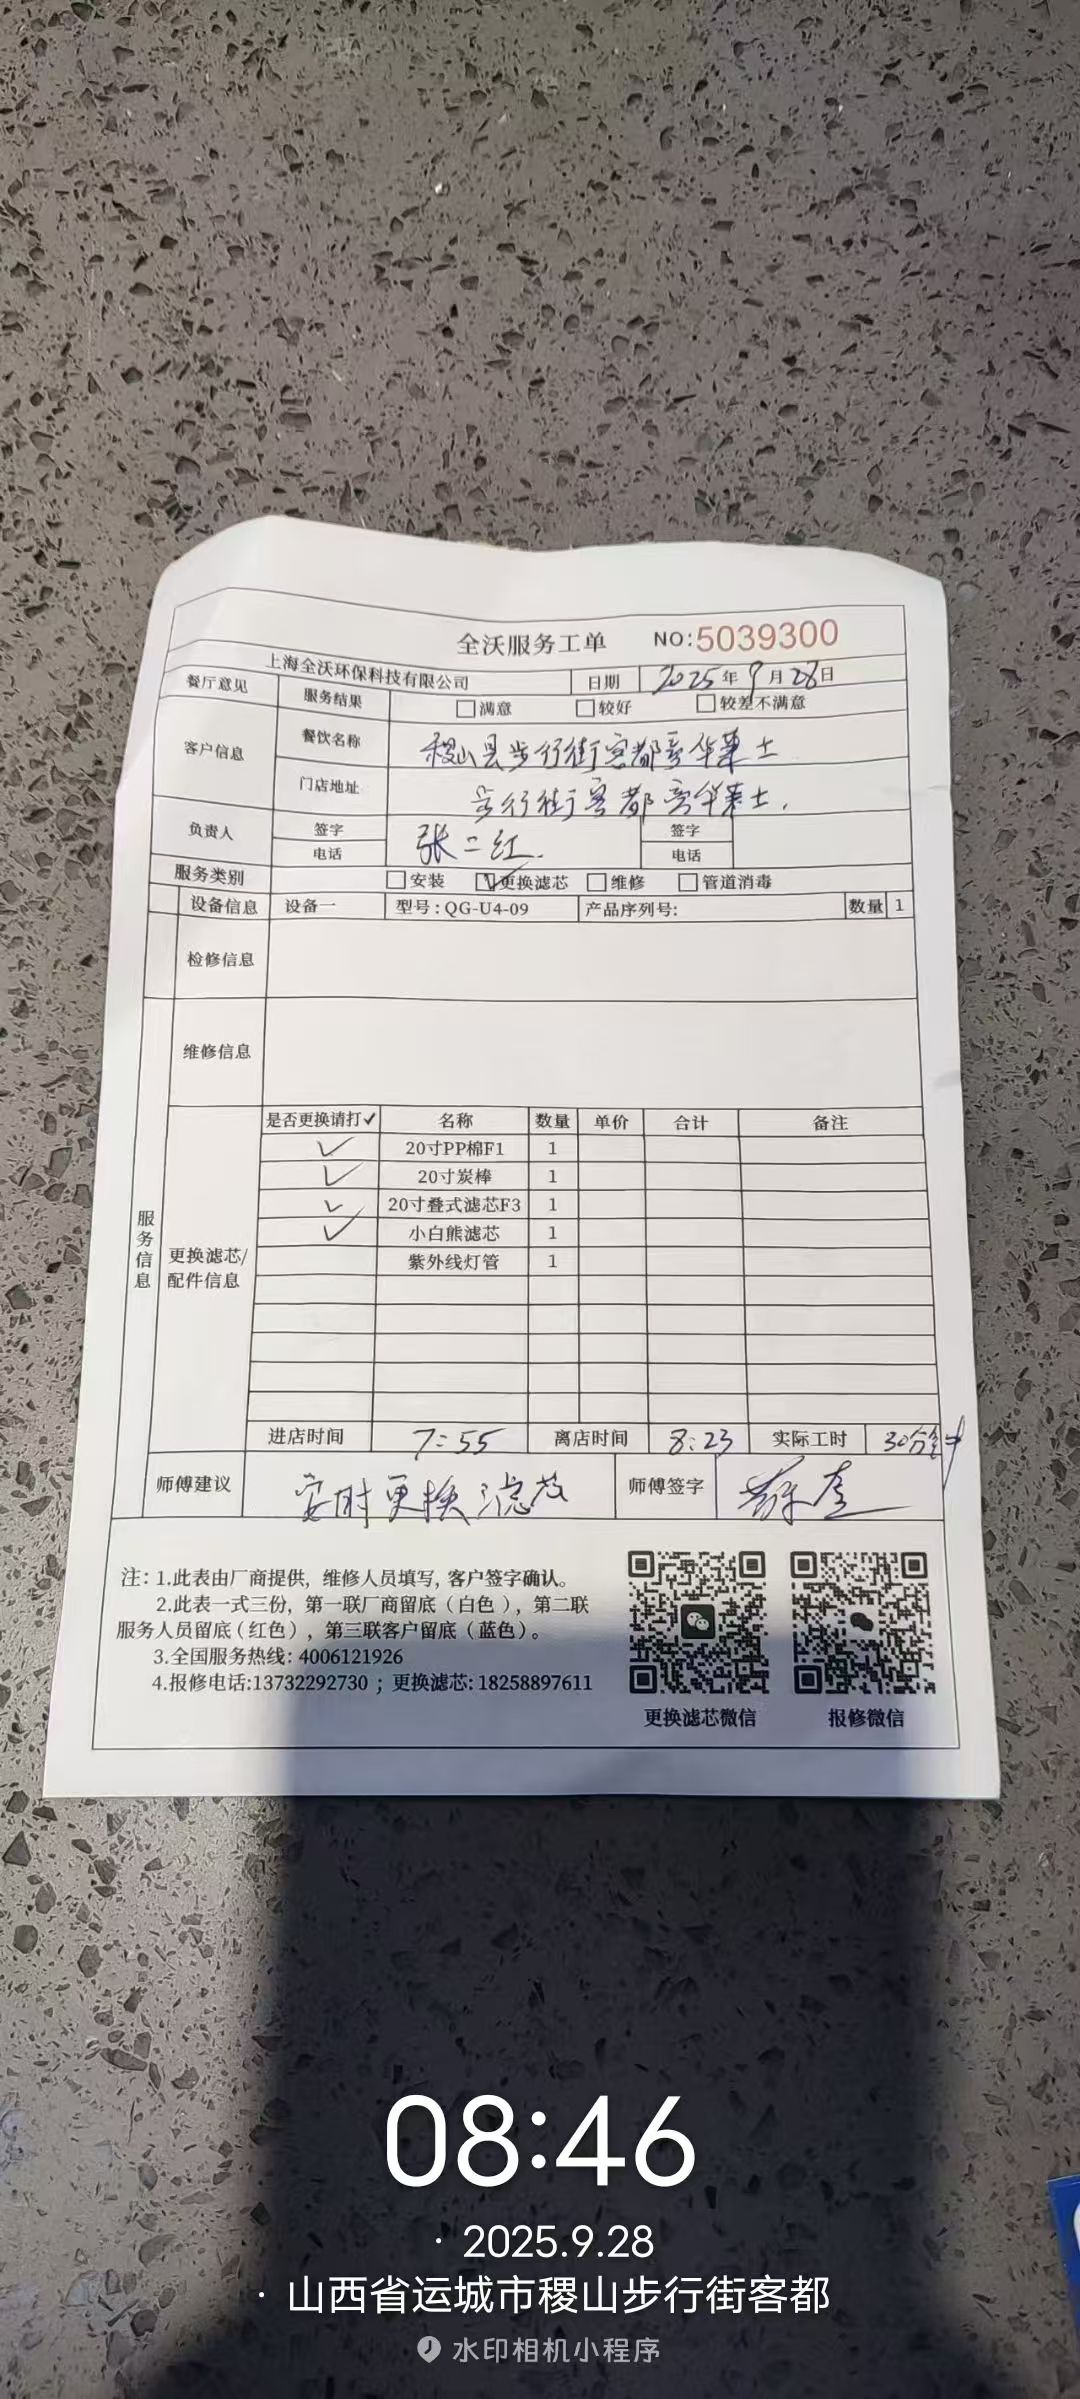 全沃服务工单 NO:5039300
上海全沃环保科技有限公司 日期 2025年9月28日
餐厅意见 服务结果 □满意 □较好 □较差不满意
客户信息 餐饮名称 稷山县步行街客都享华莱士
门店地址 步行街客都享华莱士.
负责人 签字 张二红. 签字
电话 电话
服务类别 □安装 ☑更换滤芯 □维修 □管道消毒
设备信息 设备一 型号:QG-U4-09 产品序列号: 数量 1
检修信息
维修信息
服务信息
更换滤芯/配件信息
是否更换请打✓ 名称 数量 单价 合计 备注
✓ 20寸PP棉F1 1
✓ 20寸炭棒 1
✓ 20寸叠式滤芯F3 1
✓ 小白熊滤芯 1
紫外线灯管 1
进店时间 7:55 离店时间 8:23 实际工时 30分钟
师傅建议 安时更换滤芯 师傅签字
注: 1.此表由厂商提供, 维修人员填写, 客户签字确认。
2.此表一式三份, 第一联厂商留底(白色), 第二联
服务人员留底(红色), 第三联客户留底(蓝色)。
3.全国服务热线: 4006121926
4.报修电话:13732292730 ; 更换滤芯: 18258897611
更换滤芯微信 报修微信
08:46
· 2025.9.28
· 山西省运城市稷山步行街客都
水印相机小程序